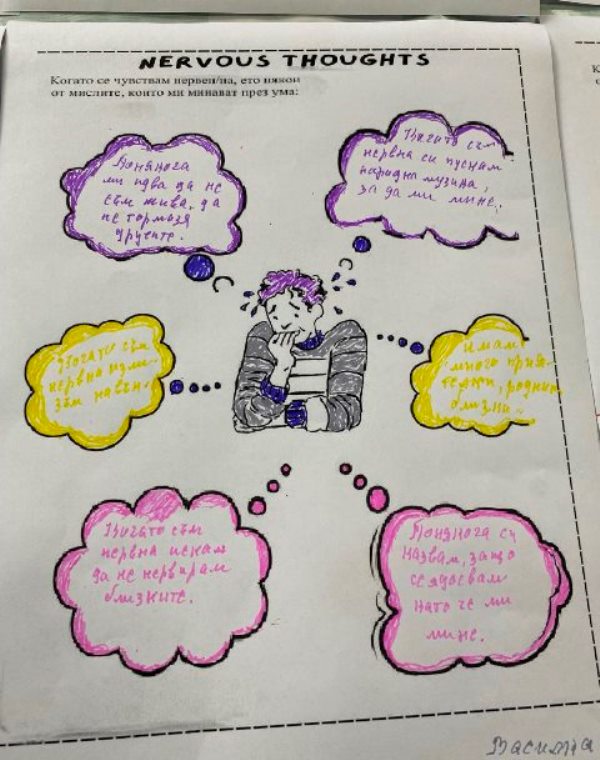 NERVOUS THOUGHTS
Когато се чувствам нервен/на, ето някои
от мислите, които ми минават през ума:
Понякога
ми идва да не
съм жива, да
не тормозя
другите.
Когато съм
нервна си пускам
народна музика,
за да ми мине.
Когато съм
нервна изли-
зам навън.
Имам
много прия-
телки, роднини
близки.
Когато съм
нервна искам
да не нервирам
близките.
Понякога си
казвам, защо
се ядосвам
като че ми
мине.
К
о